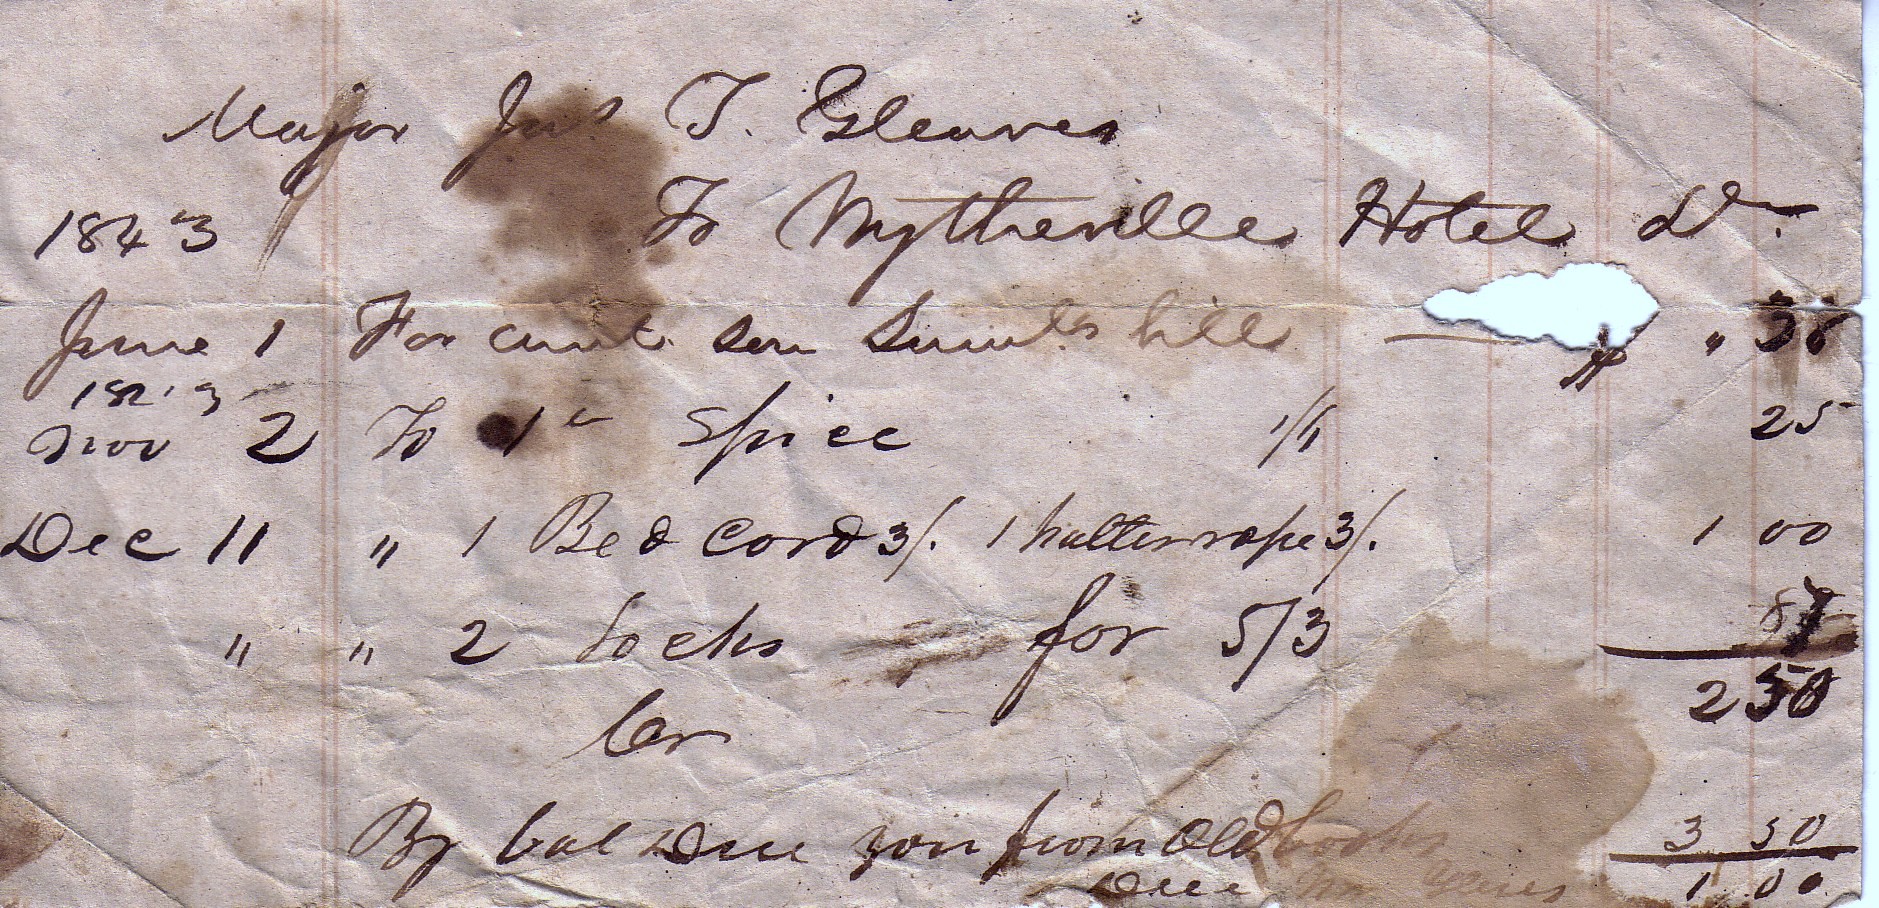 Major Jas T. Gleaves
1843 To Wytheville Hotel Dr.
June 1 For amt. son bill $ " 38
1843
Nov 2 To 1 lb Spice 1/6 25
Dec 11 " 1 Bed Cord 3/. 1 halter rope 3/. 1 00
" " 2 Locks for 5/3 87
2 50
Cr
By bal Due you from Old books 3 50
Due Mr Gleaves 1 00